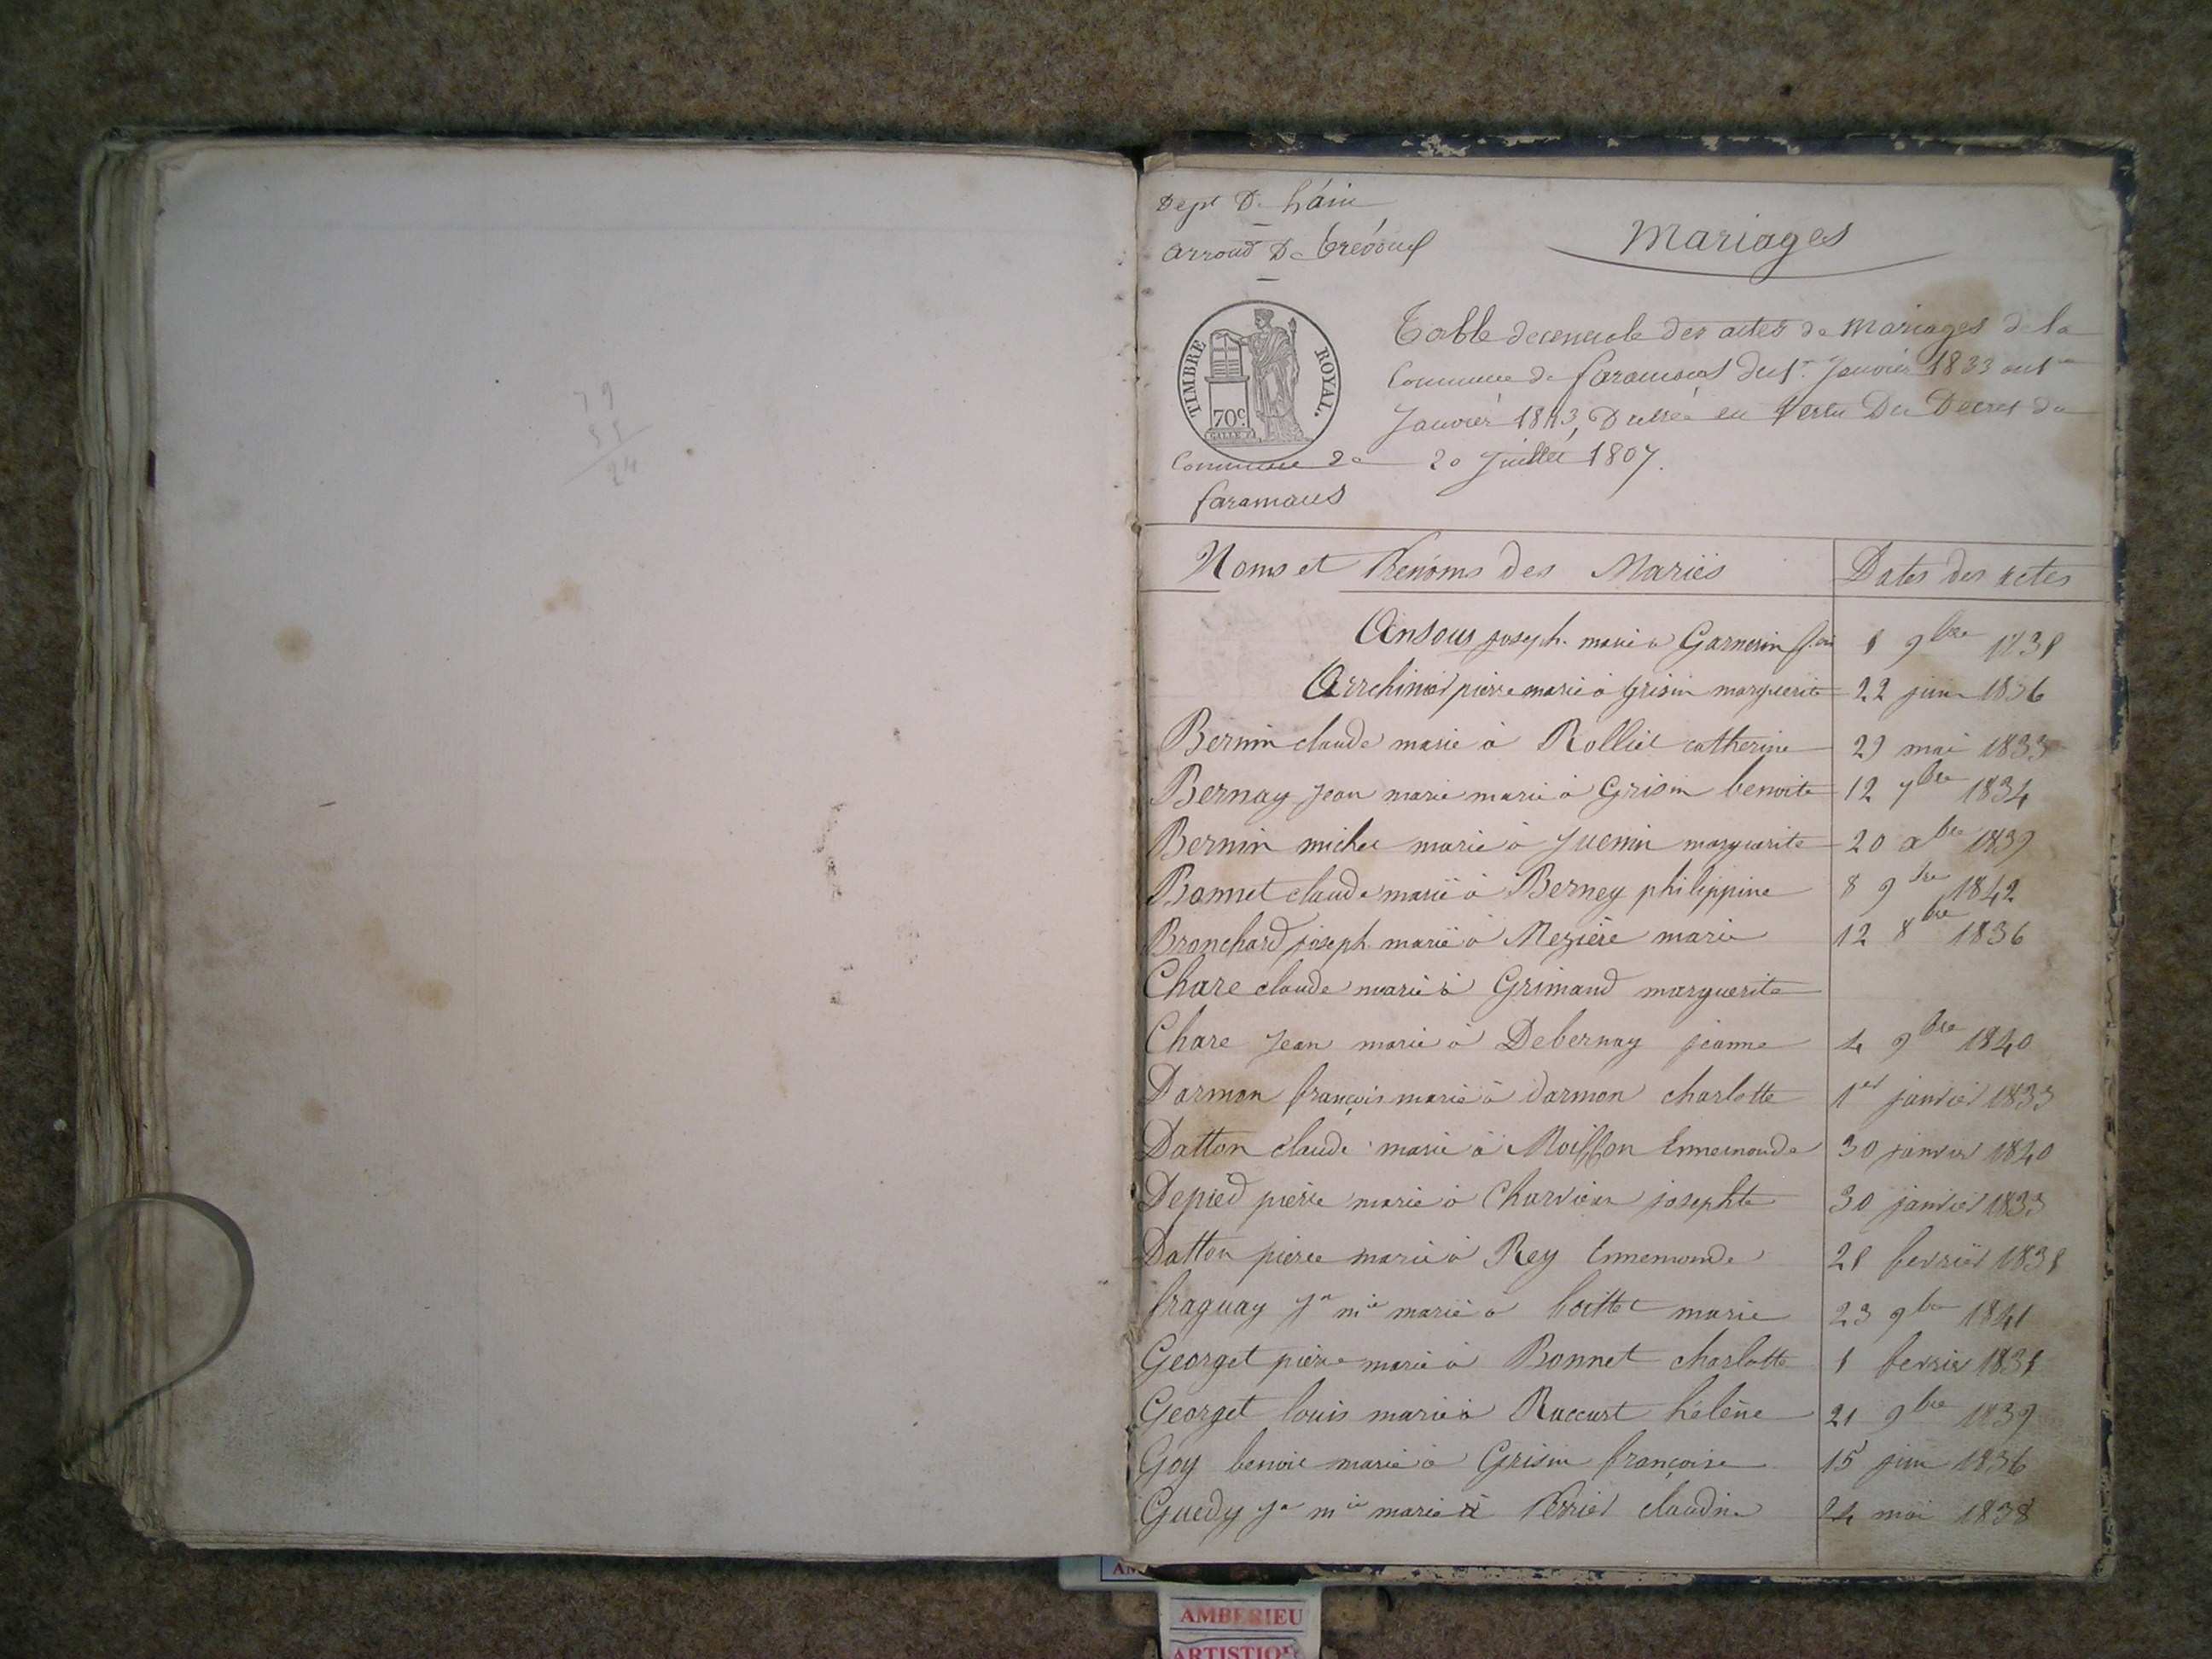 79
55
24
Dept De L'ain
Arrond De Trévoux
Mariages
TIMBRE ROYAL.
70c
Table decennale des actes de Mariages de la
Commune de faramans du 1er Janvier 1833 au 1er
Janvier 1843, Dressée en Vertu Du Decret du
20 Juillet 1807.
Commune de
faramans
Noms et Prenoms des Mariés
Dates des actes
joseph marié à Garnerin
9bre
pierre marié à Grisin marguerite 22 juin 1836
Bernin claude marié à Rolliet catherine 29 mai 1833
Bernay Jean marie marié à Grisin benoite 12 7bre 1834
Bernin michel marié à Juenin marguerite 20 xbre 1839
Bonnet claude marié à Berney philippine 8 9bre 1842
Bronchard joseph marié à Mezière marie 12 8bre 1836
Chare claude marié à Grimand marguerite
Chare Jean marié à Debernay jeanne 4 9bre 1840
Darmon françois marié à darmon charlotte 1er janvier 1833
Datton claude marié à Moiffon Ennemonde 30 janvier 1840
Depied pierre marié à josephte 30 janvier 1833
Datton pierre marié à Rey Ennemonde 28 fevrier 1838
fraguay Jn mie marié à marie 23 9bre 1841
Georget pierre marié à Bonnet charlotte 8 fevrier 1838
Georget louis marié à Raccurt hélène 21 9bre 1839
Goy benoit marié à Grisin françoise 15 juin 1836
Guedy Jn mie marié à Perrier claudine 24 mai 1838
AMBERIEU